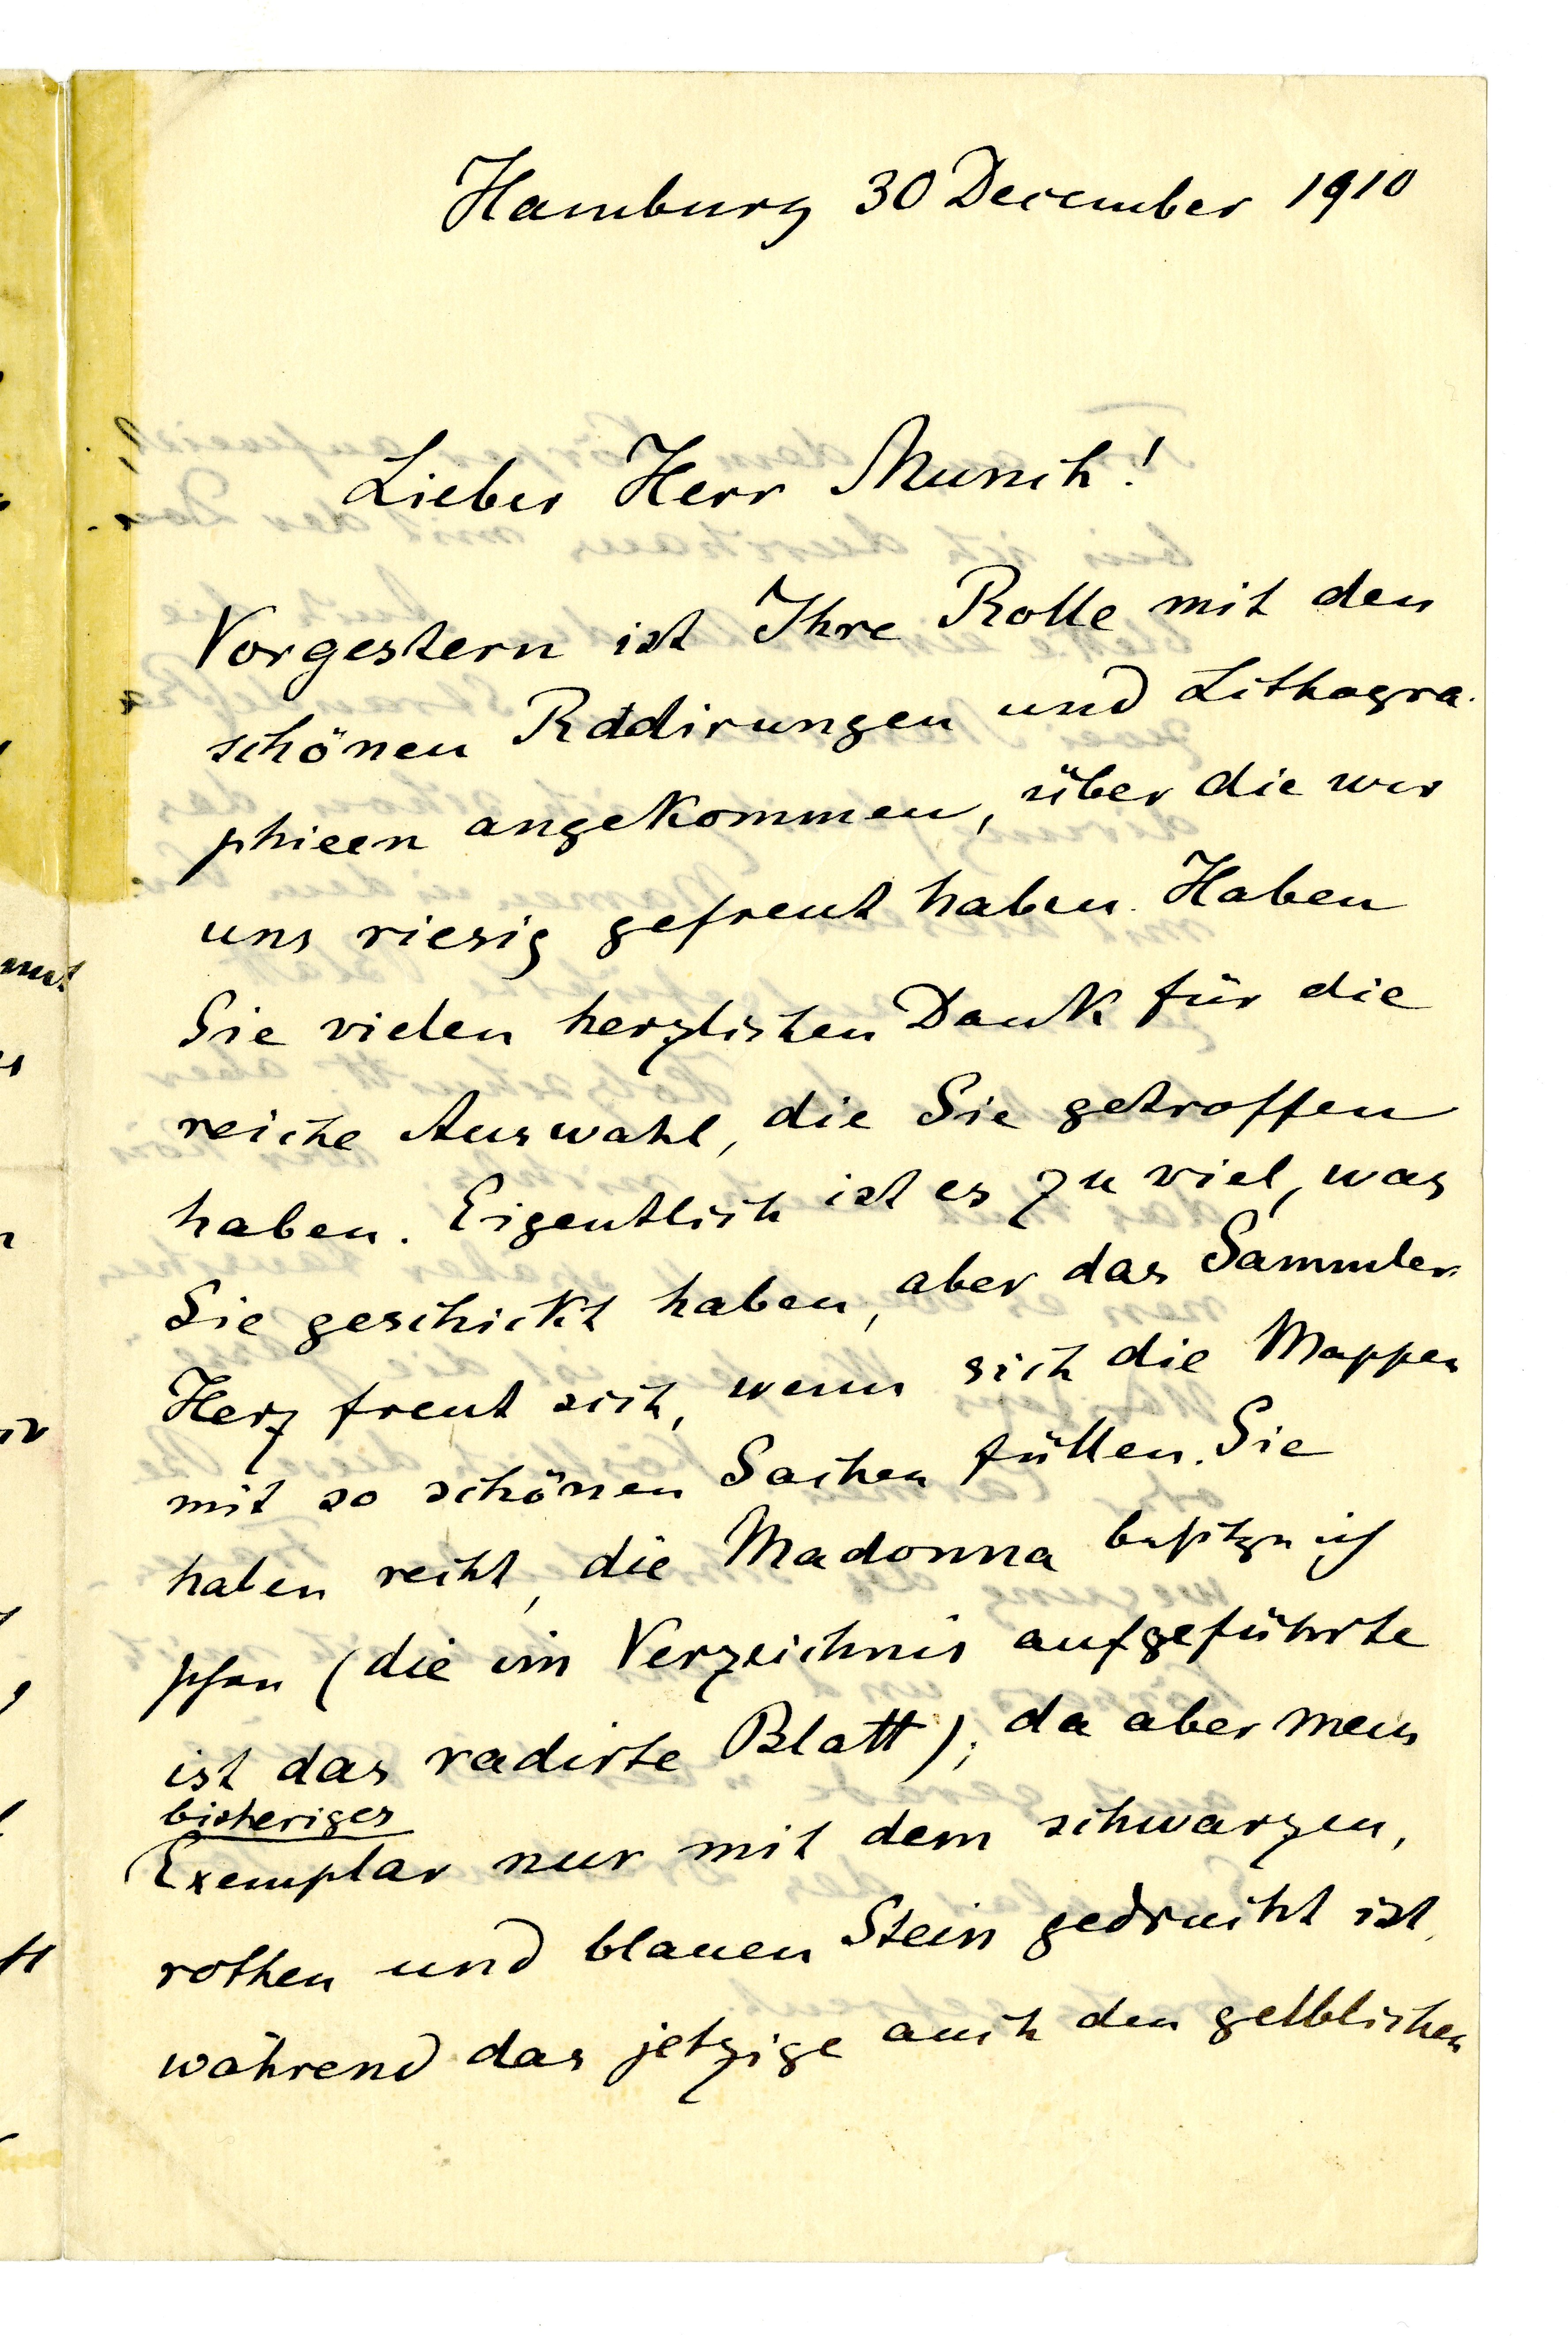 Hamburg 30 December 1910
Lieber Herr Munch!
Vorgestern ist Ihre Rolle mit den
schönen Radirungen und Lithogra-
phieen angekommen, über die wir
uns riesig gefreut haben. Haben
Sie vielen herzlichen Dank für die
reiche Auswahl, die Sie getroffen
haben. Eigentlich ist es zu viel, was
Sie geschickt haben, aber das Sammler-
Herz freut sich, wenn sich die Mappen
mit so schönen Sachen füllen. Sie
haben recht, die Madonna besitze ich
schon (die im Verzeichnis aufgeführte
ist das radirte Blatt); da aber mein
bisheriges
Exemplar nur mit dem schwarzen,
rothen und blauen Stein gedruckt ist,
während das jetzige auch den gelblichen